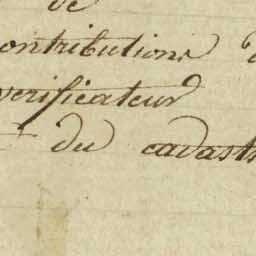 de
contributions d
verificateur
du cadast